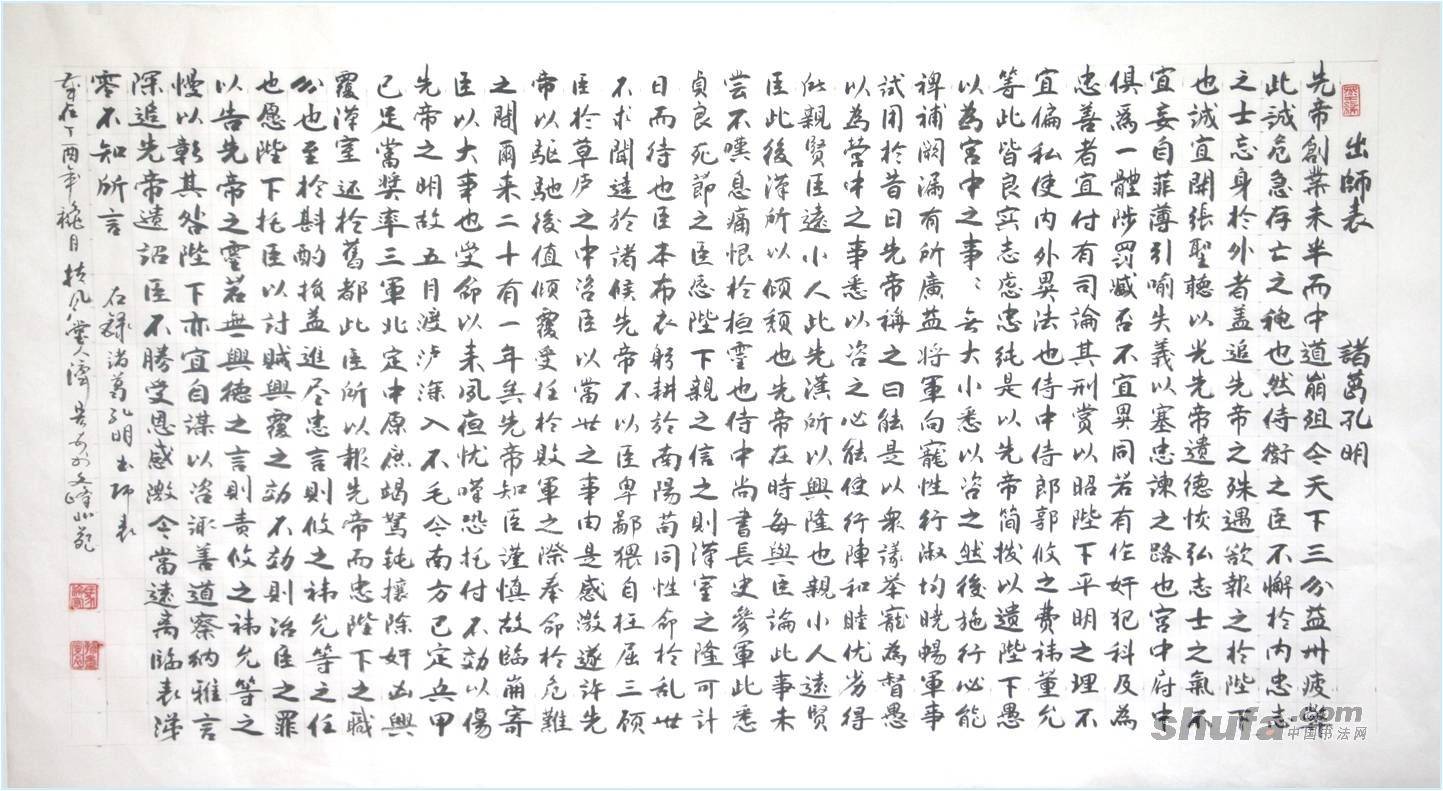 出師表 諸葛孔明
先帝創業未半而中道崩殂今天下三分益州疲弊
此誠危急存亡之秋也然侍衛之臣不懈於内忠志
之士忘身於外者盖追先帝之殊遇欲報之於陛下
也誠宜開張聖聽以光先帝遺德恢弘志士之氣不
宜妄自菲薄引喻失義以塞忠諫之路也宮中府中
俱為一體陟罰臧否不宜異同若有作奸犯科及為
忠善者宜付有司論其刑賞以昭陛下平明之理不
宜偏私使内外異法也侍中侍郎郭攸之費禕董允
等此皆良实志慮忠純是以先帝简拨以遺陛下愚
以為宮中之事:無大小悉以咨之然後施行必能
裨補闕漏有所廣益将軍向寵性行淑均曉暢軍事
試用於昔日先帝稱之曰能是以衆議举寵為督愚
以為營中之事悉以咨之必能使行陣和睦优劣得
所親賢臣遠小人此先漢所以興隆也親小人遠賢
臣此後漢所以傾頹也先帝在時每與臣論此事未
嘗不嘆息痛恨於桓靈也侍中尚書長史參軍此悉
貞良死節之臣愿陛下親之信之則漢室之隆可計
日而待也臣本布衣躬耕於南陽苟同性命於乱世
不求聞達於諸候先帝不以臣卑鄙猥自枉屈三顾
臣於草庐之中咨臣以當世之事由是感激遂許先
帝以驱馳後值傾覆受任於敗軍之際奉命於危難
之間爾来二十有一年矣先帝知臣謹慎故臨崩寄
臣以大事也受命以来夙夜忧嘆恐托付不効以傷
先帝之明故五月渡泸深入不毛今南方已定兵甲
已足當奖率三軍北定中原庶竭驽钝攘除奸凶興
覆漢室还於舊都此臣所以報先帝而忠陛下之職
分也至於斟酌損益進尽忠言則攸之禕允等之任
也愿陛下托臣以討賊興覆之効不効則治臣之罪
以告先帝之靈若無興德之言則責攸之禕允等之
慢以彰其咎陛下亦宜自謀以咨诹善道察納雅言
深追先帝遺詔臣不勝受恩感激今當遠离臨表涕
零不知所言 右録諸葛孔明出师表
歲在丁酉年秋月扶风
shufa.com
中国书法网